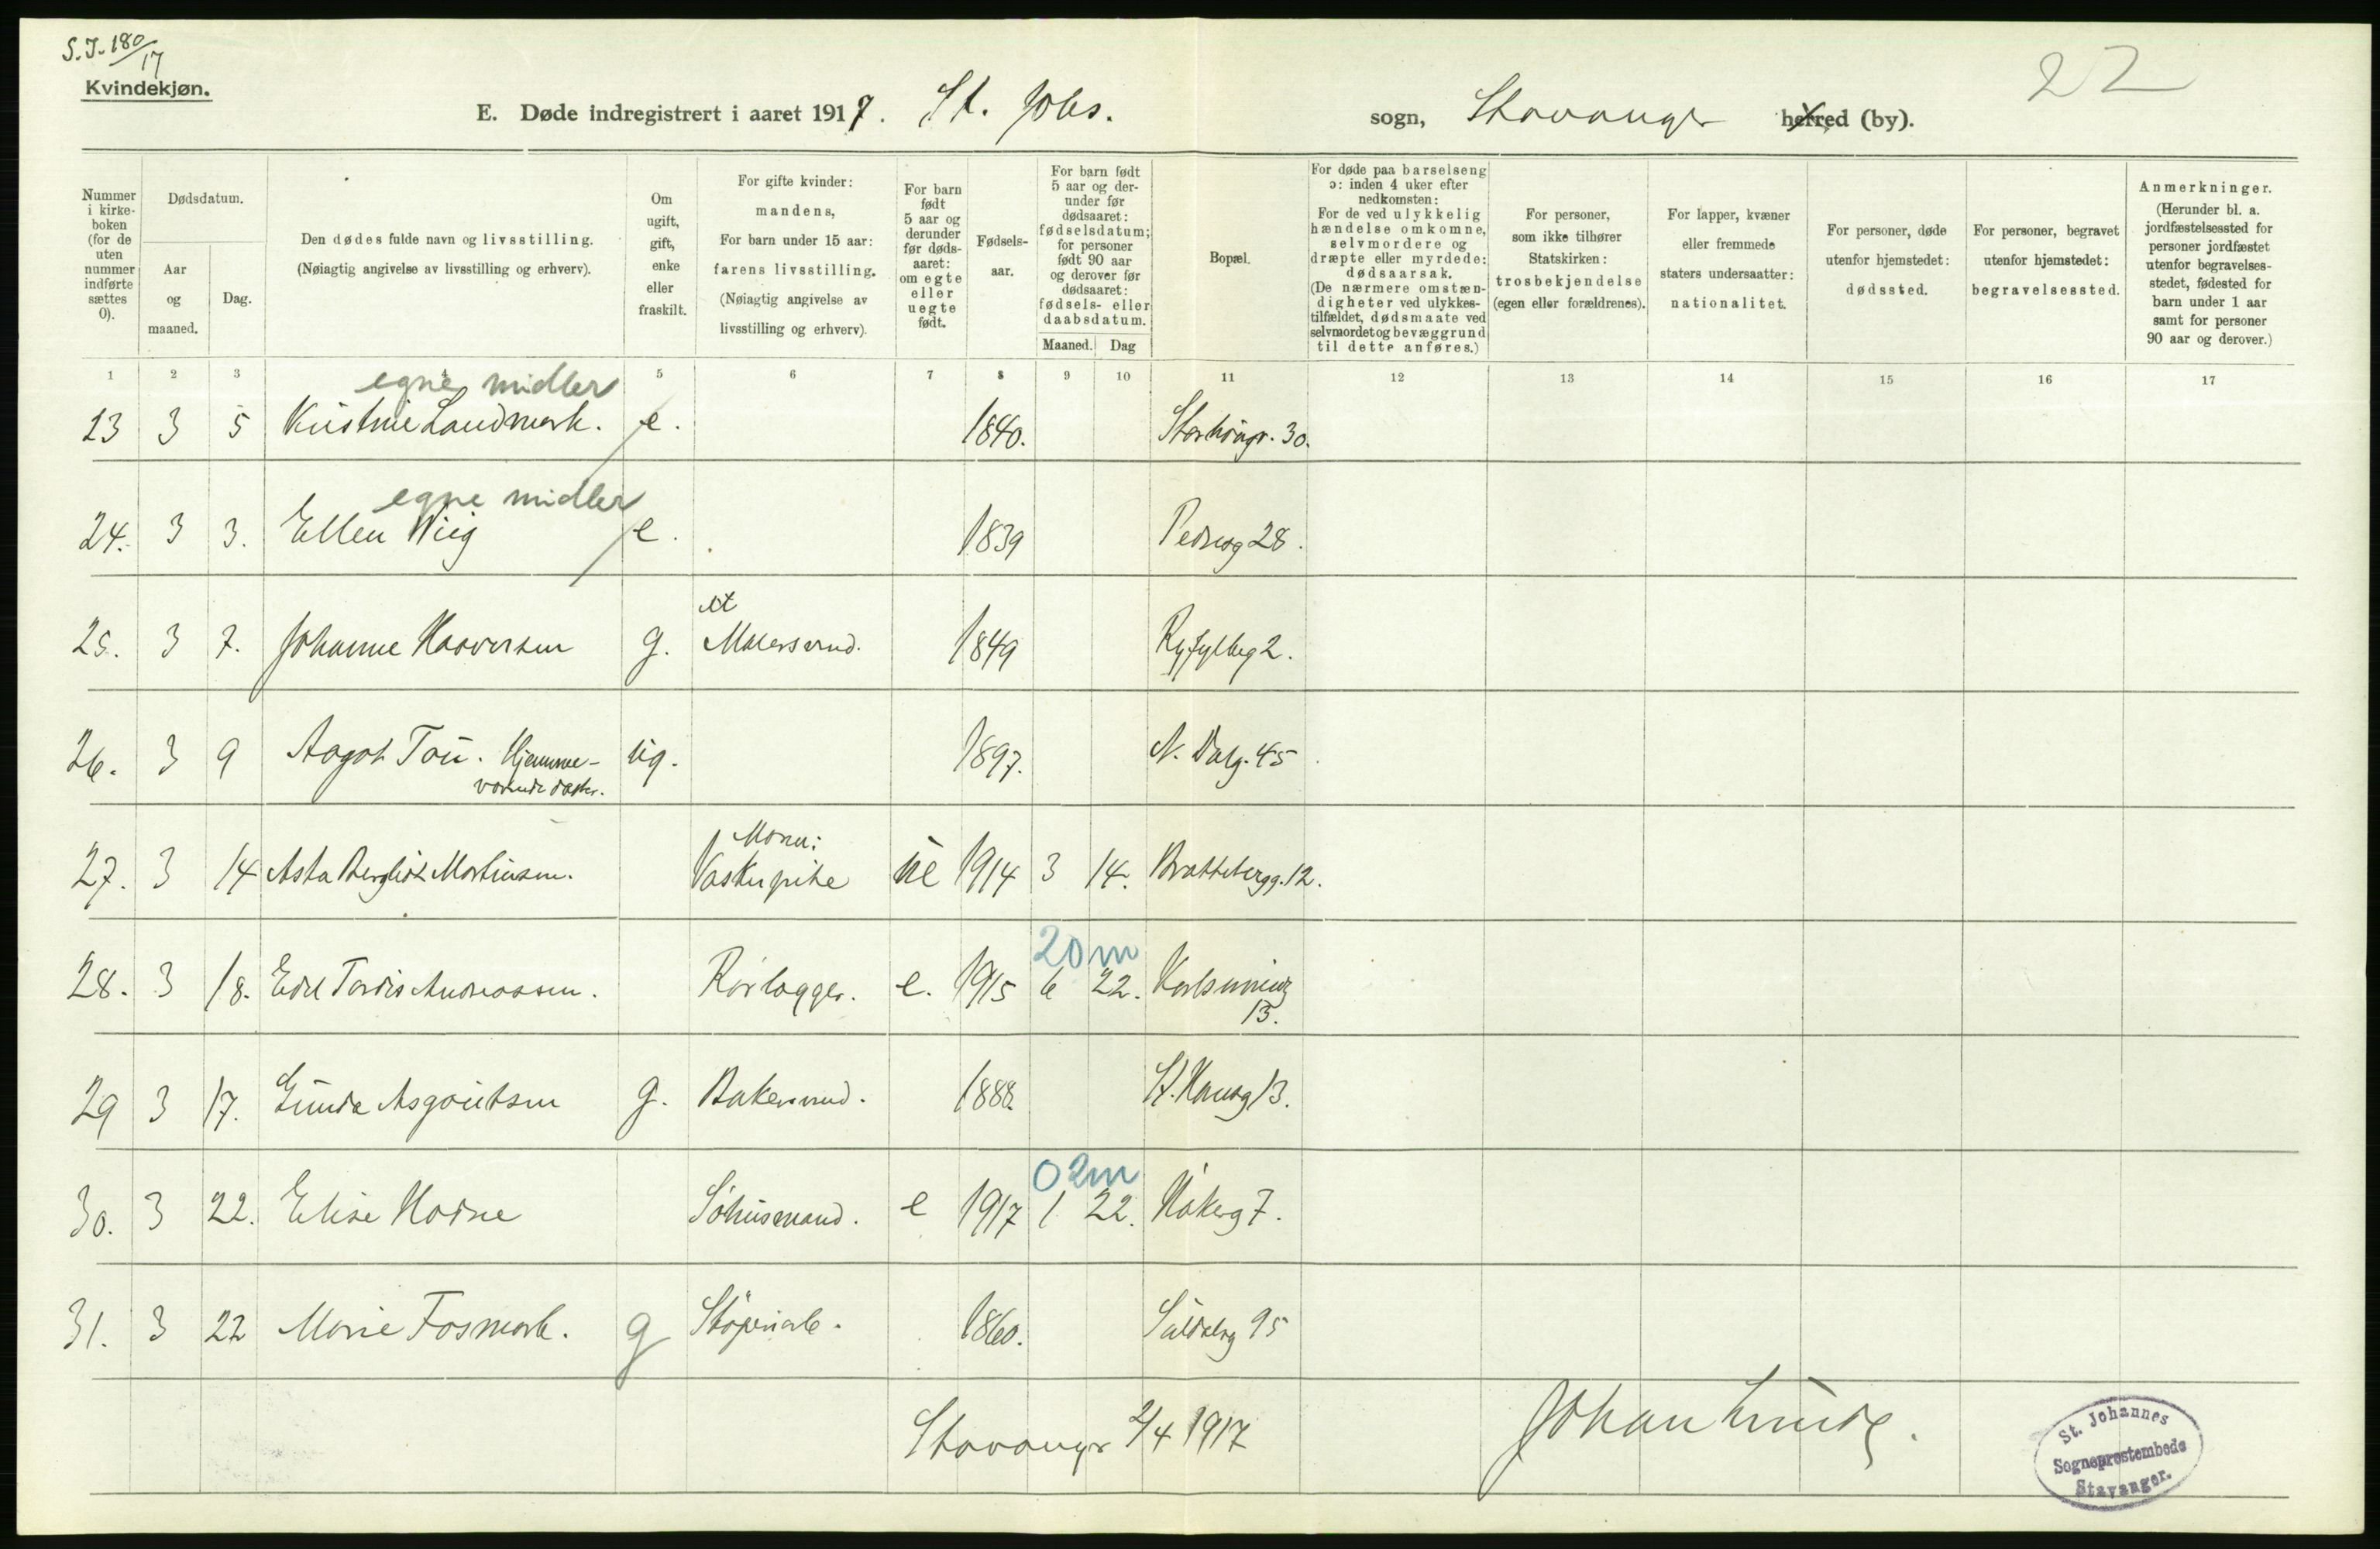 S.J. 180/17
22
Kvindekjøn.
E. Døde indregistrert i aaret 1917. St. Johs. sogn, Stavanger herred (by).
Nummer i kirkeboken (for de uten nummer indførte sættes 0).
Dødsdatum.
Aar og maaned.
Dag.
Den dødes fulde navn og livsstilling.
(Nøiagtig angivelse av livsstilling og erhverv).
Om ugift, gift, enke eller fraskilt.
For gifte kvinder: mandens, For barn under 15 aar: farens livsstilling. (Nøiagtig angivelse av livsstilling og erhverv).
For barn født 5 aar og derunder før dødsaaret: om egte eller uegte født.
Fødselsaar.
For barn født 5 aar og derunder før dødsaaret: fødselsdatum; for personer født 90 aar og derover før dødsaaret: fødsels- eller daabsdatum.
Maaned. Dag
Bopæl.
For døde paa barselseng ɔ: inden 4 uker efter nedkomsten: For de ved ulykkelig hændelse omkomne, selvmordere og dræpte eller myrdede: dødsaarsak. (De nærmere omstændigheter ved ulykkestilfældet, dødsmaate ved selvmordet og bevæggrund til dette anføres.)
For personer, som ikke tilhører Statskirken: trosbekjendelse (egen eller forældrenes).
For lapper, kvæner eller fremmede staters undersaatter: nationalitet.
For personer, døde utenfor hjemstedet: dødssted.
For personer, begravet utenfor hjemstedet: begravelsessted.
Anmerkninger. (Herunder bl. a. jordfæstelsessted for personer jordfæstet utenfor begravelsesstedet, fødested for barn under 1 aar samt for personer 90 aar og derover.)
1 2 3 5 6 7 8 9 10 11 12 13 14 15 16 17
egne midler
23 3 5 Kristine Landmark. e. 1840. 30.
egne midler
24. 3 3. Ellen Wiig e. 1839 Pedersg 28.
25. 3 7. Johanne Haaversen g. 1849 Ryfylkeg 2.
26. 3 9 Aagot Tou. Hjemme- ug. 1897. N. Dalg. 45
værende datter.
Moren:
27. 3 14 Asta Bergliot Martinsen. Vaskepike ue 1914 3 14. Brattebergg. 12.
20 m
28. 3 18. Edel Tordis Andreassen. Rørlægger. e. 1915 6 22. Karlsminneg
13.
29 3 17. Gunda Asgautsen g. Bakersvend. 1888. St. Hansg 13.
0 2m
30. 3 22. Elise Hodne Søhusmand. e 1917 1 22. Hákeg 7.
31. 3 22 Marie Fosmark. g Støperiarb. 1860. Suldalsg 95
Stavanger 2/4 1917 Johan Lunde.
St. Johannes
Sogneprestembede
Stavanger.